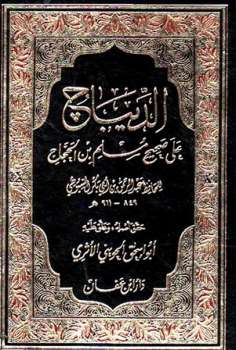 الديباج
على صحيح مسلم بن الحجاج
للحافظ عبد الرحمن بن أبي بكر السيوطي
٨٤٩ - ٩١١ هـ
حقق أصله، وعلق عليه
أبو إسحق الحويني الأثري
دار ابن عفان